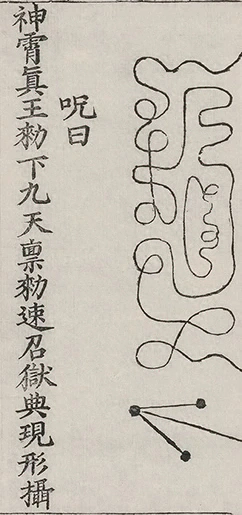 呪曰
神霄真王勑下九天禀勑速召獄典現形攝